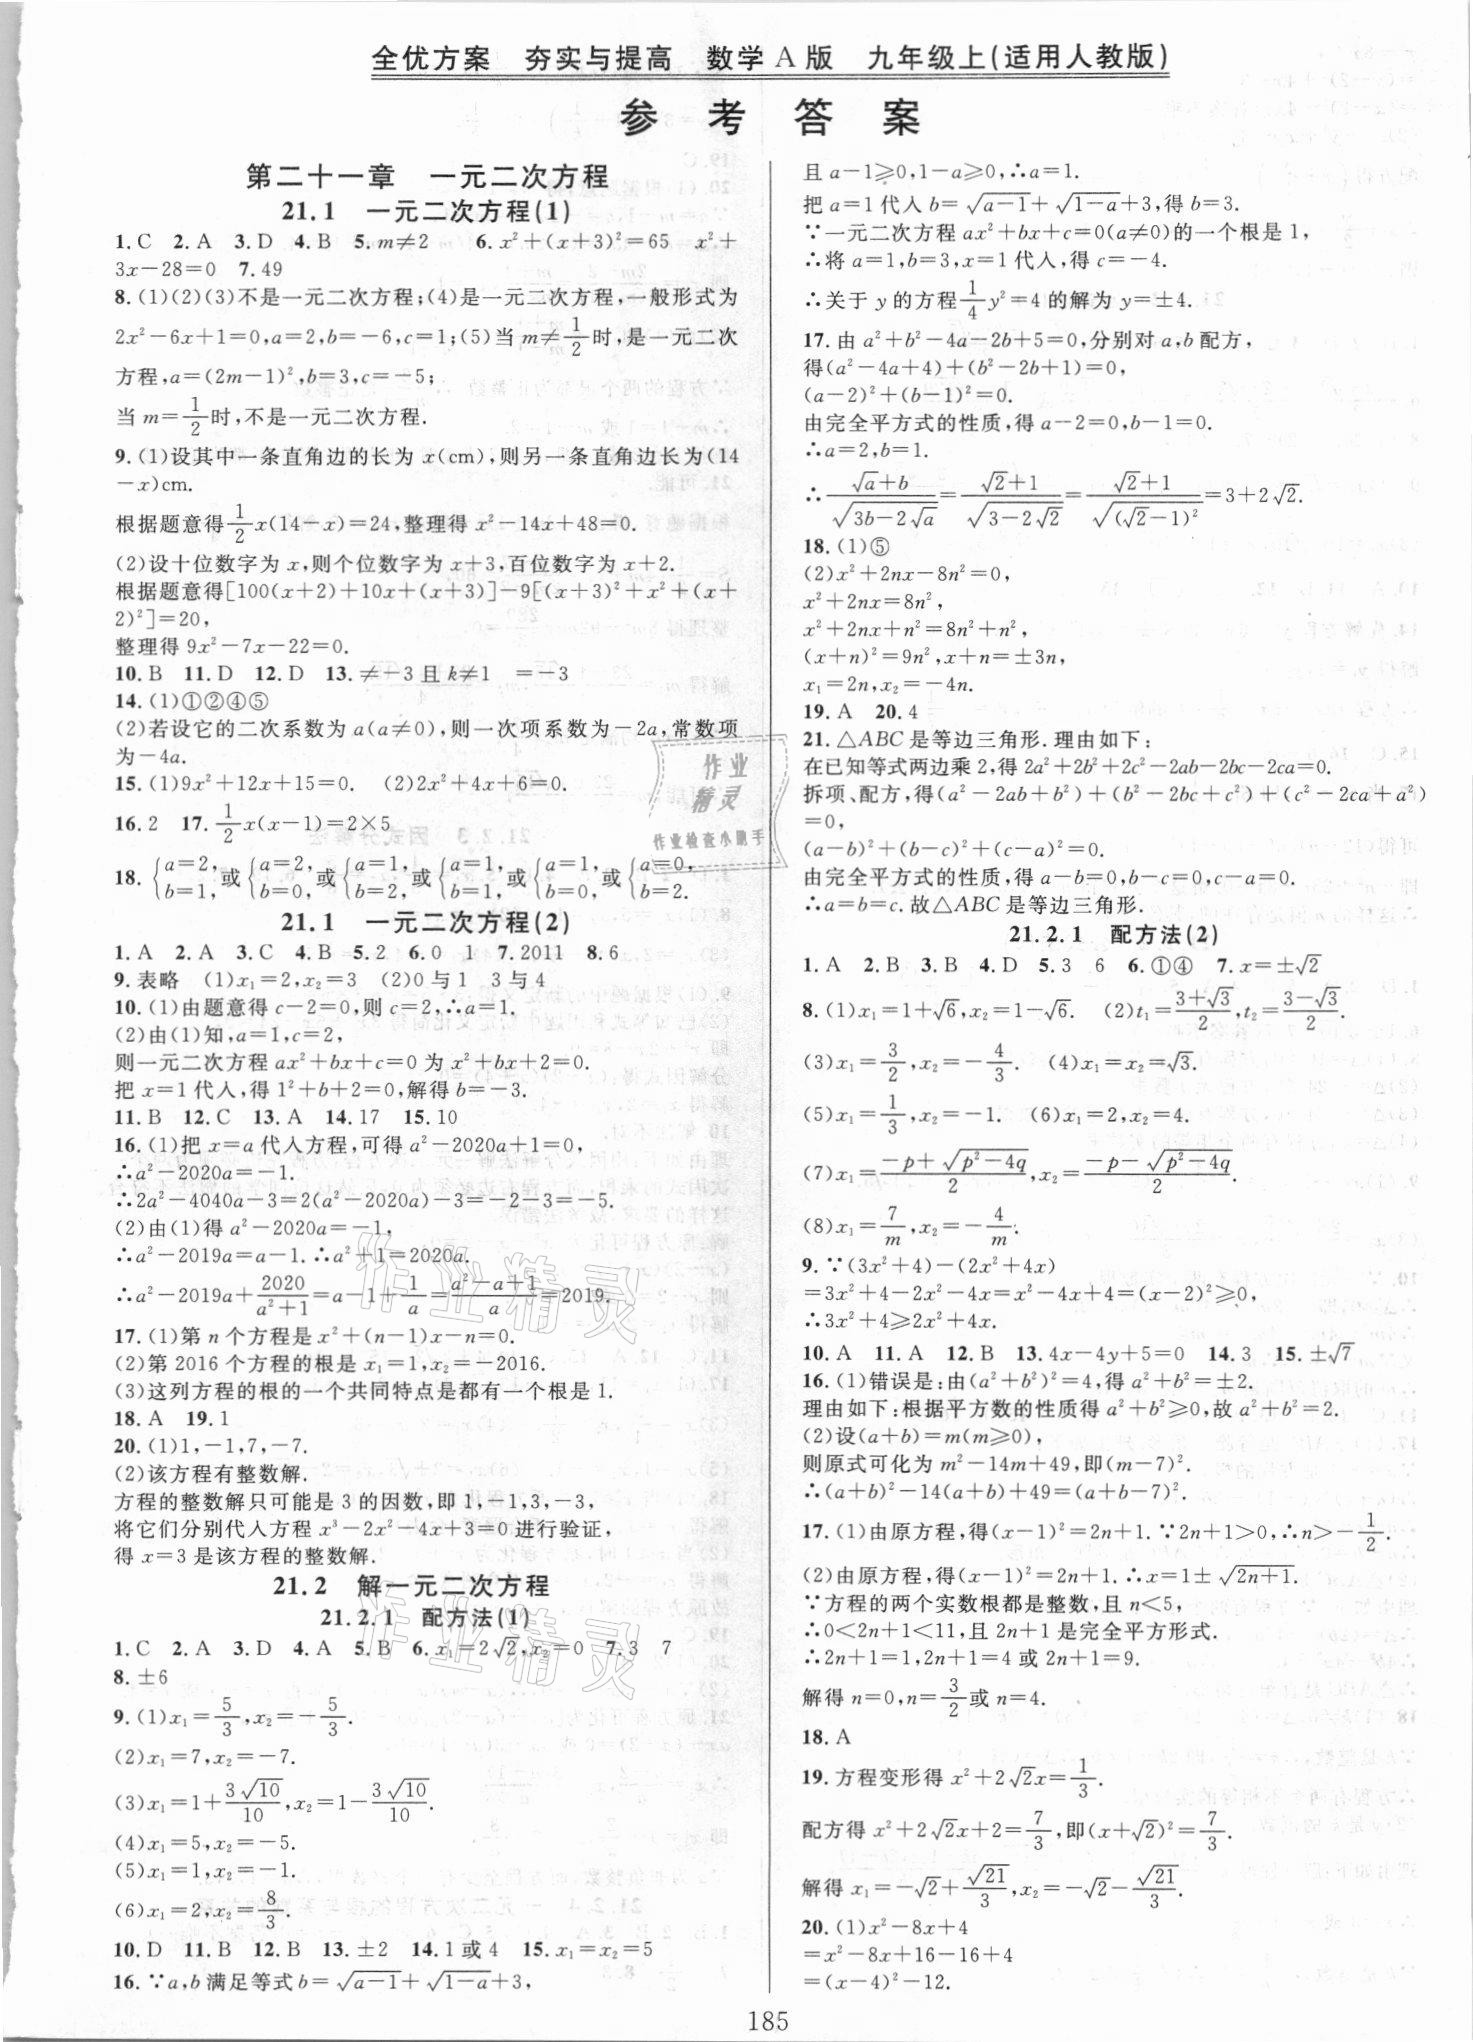 全优方案　夯实与提高　数学A版　九年级上(适用人教版)
参 考 答 案
第二十一章　一元二次方程
21.1　一元二次方程(1)
1.C　2.A　3.D　4.B　5.m≠2　6.x²+(x+3)²=65　x²+
3x-28=0　7.49
8.(1)(2)(3)不是一元二次方程;(4)是一元二次方程,一般形式为
2x²-6x+1=0,a=2,b=-6,c=1;(5)当m≠1/2时,是一元二次
方程,a=(2m-1)²,b=3,c=-5;
当m=1/2时,不是一元二次方程.
9.(1)设其中一条直角边的长为x(cm),则另一条直角边长为(14
-x)cm.
根据题意得1/2x(14-x)=24,整理得x²-14x+48=0.
(2)设十位数字为x,则个位数字为x+3,百位数字为x+2.
根据题意得[100(x+2)+10x+(x+3)]-9[(x+3)²+x²+(x+
2)²]=20,
整理得9x²-7x-22=0.
10.B　11.D　12.D　13.≠-3且k≠1　=-3
14.(1)①②④⑤
(2)若设它的二次系数为a(a≠0),则一次项系数为-2a,常数项
为-4a.
15.(1)9x²+12x+15=0.　(2)2x²+4x+6=0.
16.2　17.1/2x(x-1)=2×5
18.{a=2,b=1,或{a=2,b=0,或{a=1,b=2,或{a=1,b=1,或{a=1,b=0,或{a=0,b=2.
21.1　一元二次方程(2)
1.A　2.A　3.C　4.B　5.2　6.0　1　7.2011　8.6
9.表略　(1)x₁=2,x₂=3　(2)0与1　3与4
10.(1)由题意得c-2=0,则c=2,∴a=1.
(2)由(1)知,a=1,c=2,
则一元二次方程ax²+bx+c=0为x²+bx+2=0.
把x=1代入,得1²+b+2=0,解得b=-3.
11.B　12.C　13.A　14.17　15.10
16.(1)把x=a代入方程,可得a²-2020a+1=0,
∴a²-2020a=-1.
∴2a²-4040a-3=2(a²-2020a)-3=-2-3=-5.
(2)由(1)得a²-2020a=-1,
∴a²-2019a=a-1.∴a²+1=2020a.
∴a²-2019a+2020/(a²+1)=a-1+1/a=(a²-a+1)/a=2019.
17.(1)第n个方程是x²+(n-1)x-n=0.
(2)第2016个方程的根是x₁=1,x₂=-2016.
(3)这列方程的根的一个共同特点是都有一个根是1.
18.A　19.1
20.(1)1,-1,7,-7.
(2)该方程有整数解.
方程的整数解只可能是3的因数,即1,-1,3,-3,
将它们分别代入方程x³-2x²-4x+3=0进行验证,
得x=3是该方程的整数解.
21.2　解一元二次方程
21.2.1　配方法(1)
1.C　2.A　3.D　4.A　5.B　6.x₁=2√2,x₂=0　7.3　7
8.±6
9.(1)x₁=5/3,x₂=-5/3.
(2)x₁=7,x₂=-7.
(3)x₁=1+3√10/10,x₂=1-3√10/10.
(4)x₁=5,x₂=-5.
(5)x₁=1,x₂=-1.
(6)x₁=2,x₂=8/3.
10.D　11.B　12.B　13.±2　14.1或4　15.x₁=x₂=5
16.∵a,b满足等式b=√(a-1)+√(1-a)+3,
且a-1⩾0,1-a⩾0,∴a=1.
把a=1代入b=√(a-1)+√(1-a)+3,得b=3.
∵一元二次方程ax²+bx+c=0(a≠0)的一个根是1,
∴将a=1,b=3,x=1代入,得c=-4.
∴关于y的方程1/4y²=4的解为y=±4.
17.由a²+b²-4a-2b+5=0,分别对a,b配方,
得(a²-4a+4)+(b²-2b+1)=0,
(a-2)²+(b-1)²=0.
由完全平方式的性质,得a-2=0,b-1=0.
∴a=2,b=1.
∴(√a+b)/√(3b-2√a)=(√2+1)/√(3-2√2)=(√2+1)/√((√2-1)²)=3+2√2.
18.(1)⑤
(2)x²+2nx-8n²=0,
x²+2nx=8n²,
x²+2nx+n²=8n²+n²,
(x+n)²=9n²,x+n=±3n,
x₁=2n,x₂=-4n.
19.A　20.4
21.△ABC是等边三角形.理由如下:
在已知等式两边乘2,得2a²+2b²+2c²-2ab-2bc-2ca=0.
拆项、配方,得(a²-2ab+b²)+(b²-2bc+c²)+(c²-2ca+a²)
=0,
(a-b)²+(b-c)²+(c-a)²=0.
由完全平方式的性质,得a-b=0,b-c=0,c-a=0.
∴a=b=c.故△ABC是等边三角形.
21.2.1　配方法(2)
1.A　2.B　3.B　4.D　5.3　6　6.①④　7.x=±√2
8.(1)x₁=1+√6,x₂=1-√6.　(2)t₁=(3+√3)/2,t₂=(3-√3)/2.
(3)x₁=3/2,x₂=-4/3.　(4)x₁=x₂=√3.
(5)x₁=1/3,x₂=-1.　(6)x₁=2,x₂=4.
(7)x₁=(-p+√(p²-4q))/2,x₂=(-p-√(p²-4q))/2.
(8)x₁=7/m,x₂=-4/m.
9.∵(3x²+4)-(2x²+4x)
=3x²+4-2x²-4x=x²-4x+4=(x-2)²⩾0,
∴3x²+4⩾2x²+4x.
10.A　11.A　12.B　13.4x-4y+5=0　14.3　15.±√7
16.(1)错误是:由(a²+b²)²=4,得a²+b²=±2.
理由如下:根据平方数的性质得a²+b²⩾0,故a²+b²=2.
(2)设(a+b)=m(m⩾0),
则原式可化为m²-14m+49,即(m-7)².
∴(a+b)²-14(a+b)+49=(a+b-7)².
17.(1)由原方程,得(x-1)²=2n+1.∵2n+1>0,∴n>-1/2.
(2)由原方程,得(x-1)²=2n+1.∴x=1±√(2n+1).
∵方程的两个实数根都是整数,且n<5,
∴0<2n+1<11,且2n+1是完全平方形式.
∴2n+1=1,2n+1=4或2n+1=9.
解得n=0,n=3/2或n=4.
18.A
19.方程变形得x²+2√2x=1/3.
配方得x²+2√2x+2=7/3,即(x+√2)²=7/3.
解得x₁=-√2+√21/3,x₂=-√2-√21/3.
20.(1)x²-8x+4
=x²-8x+16-16+4
=(x-4)²-12.
作业
精灵
作业检查小助手
作业精灵
作业精灵
185